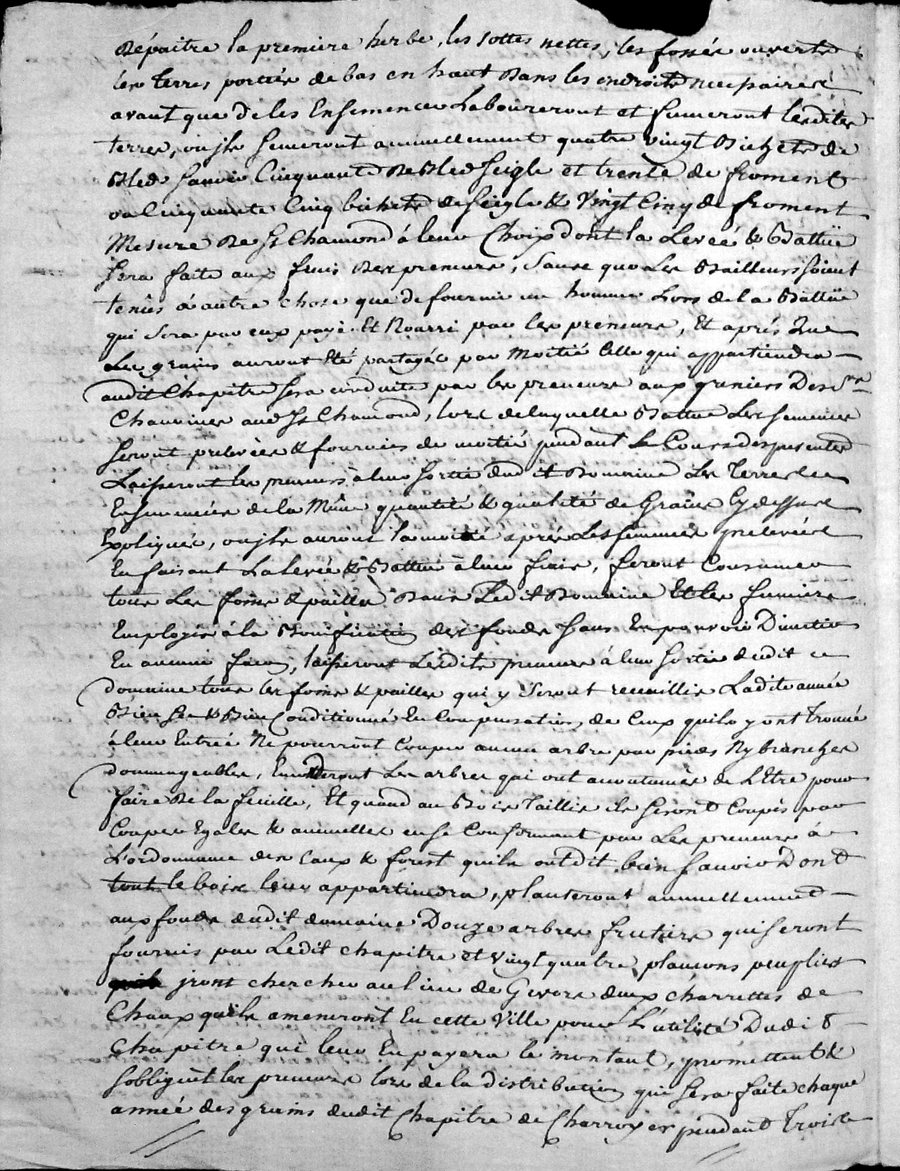 Répaitre la premiere herbe, les sottes nettes, les fossés ouverts
les Terres portées de bas en haut Dans les endroits necessaires
avant que de les Ensemencer Laboureront et fumeront lesdites
terres, ou ils semeront annuellement quatre vingt Bichets de
Bled savoir Cinquante De Bled seigle et trente de froment
ou Cinquante Cinq bichets de seigle & Vingt Cinq de froment
Mesure De St Chamond à leur Choix dont la Levée & Battüe
sera faite aux frais des preneurs, sans que Les Bailleurs soient
tenus à autre chose que de fournir un homme Lors de la Battüe
qui sera par eux payé Et Nourri par les preneurs, Et après que
Les grains auront Eté partagés par Moitié Celle qui appartiendra
audit Chapitre sera conduite par les preneurs aux greniers Des Srs
Chanoines aud. St Chamond, lors de laquelle Battue Les semences
seront prélevées & fournies de moitié pendant le Cours des presentes
Laisseront les preneurs à leur sortie dudit Domaine Les Terres
Ensemencées de la Même quantité & qualité de Grains Cy dessus
Expliqués, ou ils auront la moitié après Les semences prelevées
En faisant La levée & Battüe à leur frais, feront Consumer
tous Les foins & pailles Dans Ledit Domaine Et les fumiers
Employés à la Bonification des fonds sans En pouvoir Divertir
En aucune façon, laisseront Lesdits preneurs à leur sortie dudit
domaine tous les foins & pailles qui y seront recueillis Ladite année
Bien sec & Bien Conditionné En Compensation de Ceux quils y ont Trouvé
à leur Entrée Ne pourront Couper aucun arbre par pieds Ny branches
dommageables, Emonderont Les arbres qui ont acoutumés de L'Etre pour
faire De la feuille, Et quand au Bois Taillis ils seront Coupés par
Coupes Egales & annuelles en se Conformant par Les preneurs à
L'ordonnance des Eaux & forest quils ont dit bien savoir Dont
tout le bois leur appartiendra, planteront annuellement
aux fonds dudit domaine Douze arbres frutiers qui seront
fournis par Ledit Chapitre et vingt quatre plansons peupliers
jront chercher au lieu de Givors deux charrettes de
Chaux quils ameneront En cette Ville pour L'utilité Dudit
Chapitre qui leur En payera le montant, promettent &
s'obligent les preneurs lors de la distribution qui sera faite chaque
année des grains dudit Chapitre de Charroyer pendant Trois